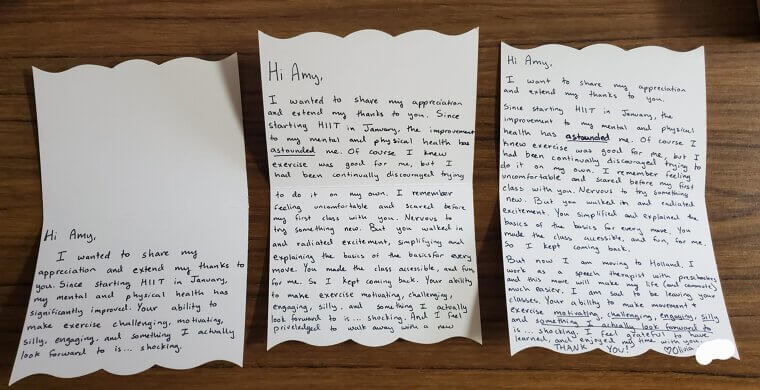 Hi Amy,
I wanted to share my
appreciation and extend my thanks to
you. Since starting HIIT in January,
my mental and physical health has
significantly improved. Your ability to
make exercise challenging, motivating,
silly, engaging, and something I actually
look forward to is... shocking.
Hi Amy,
I wanted to share my appreciation
and extend my thanks to you. Since
starting HIIT in January, the improvement
to my mental and physical health has
astounded me. Of course I knew
exercise was good for me, but I
had been continually discouraged trying
to do it on my own. I remember
feeling uncomfortable and scared before
my first class with you. Nervous to
try something new. But you walked in
and radiated excitement, simplifying and
explaining the basics of the basics for every
move. You made the class accessible, and fun,
for me. So I kept coming back. Your ability
to make exercise motivating, challenging,
engaging, silly, and something I actually
look forward to is... shocking. And I feel
priveledged to walk away with a new
Hi Amy,
I want to share my appreciation
and extend my thanks to you.
Since starting HIIT in January, the
improvement to my mental and physical
health has astounded me. Of course I
knew exercise was good for me, but I
had been continually discouraged trying to
do it on my own. I remember feeling
uncomfortable and scared before my first
class with you. Nervous to try something
new. But you walked in and radiated
excitement. You simplified and explained the
basics of the basics for every move. You
made the class accessible, and fun, for me.
So I kept coming back.
But now I am moving to Holland. I
work as a speech therapist with preschoolers
and this move will make my life (and commute)
much easier. I am sad to be leaving your
classes. Your ability to make movement &
exercise motivating, challenging, engaging, silly
and something I actually look forward to
is... shocking. I feel grateful to have
learned, and enjoyed my time with you.
THANK YOU! ♡Olivia